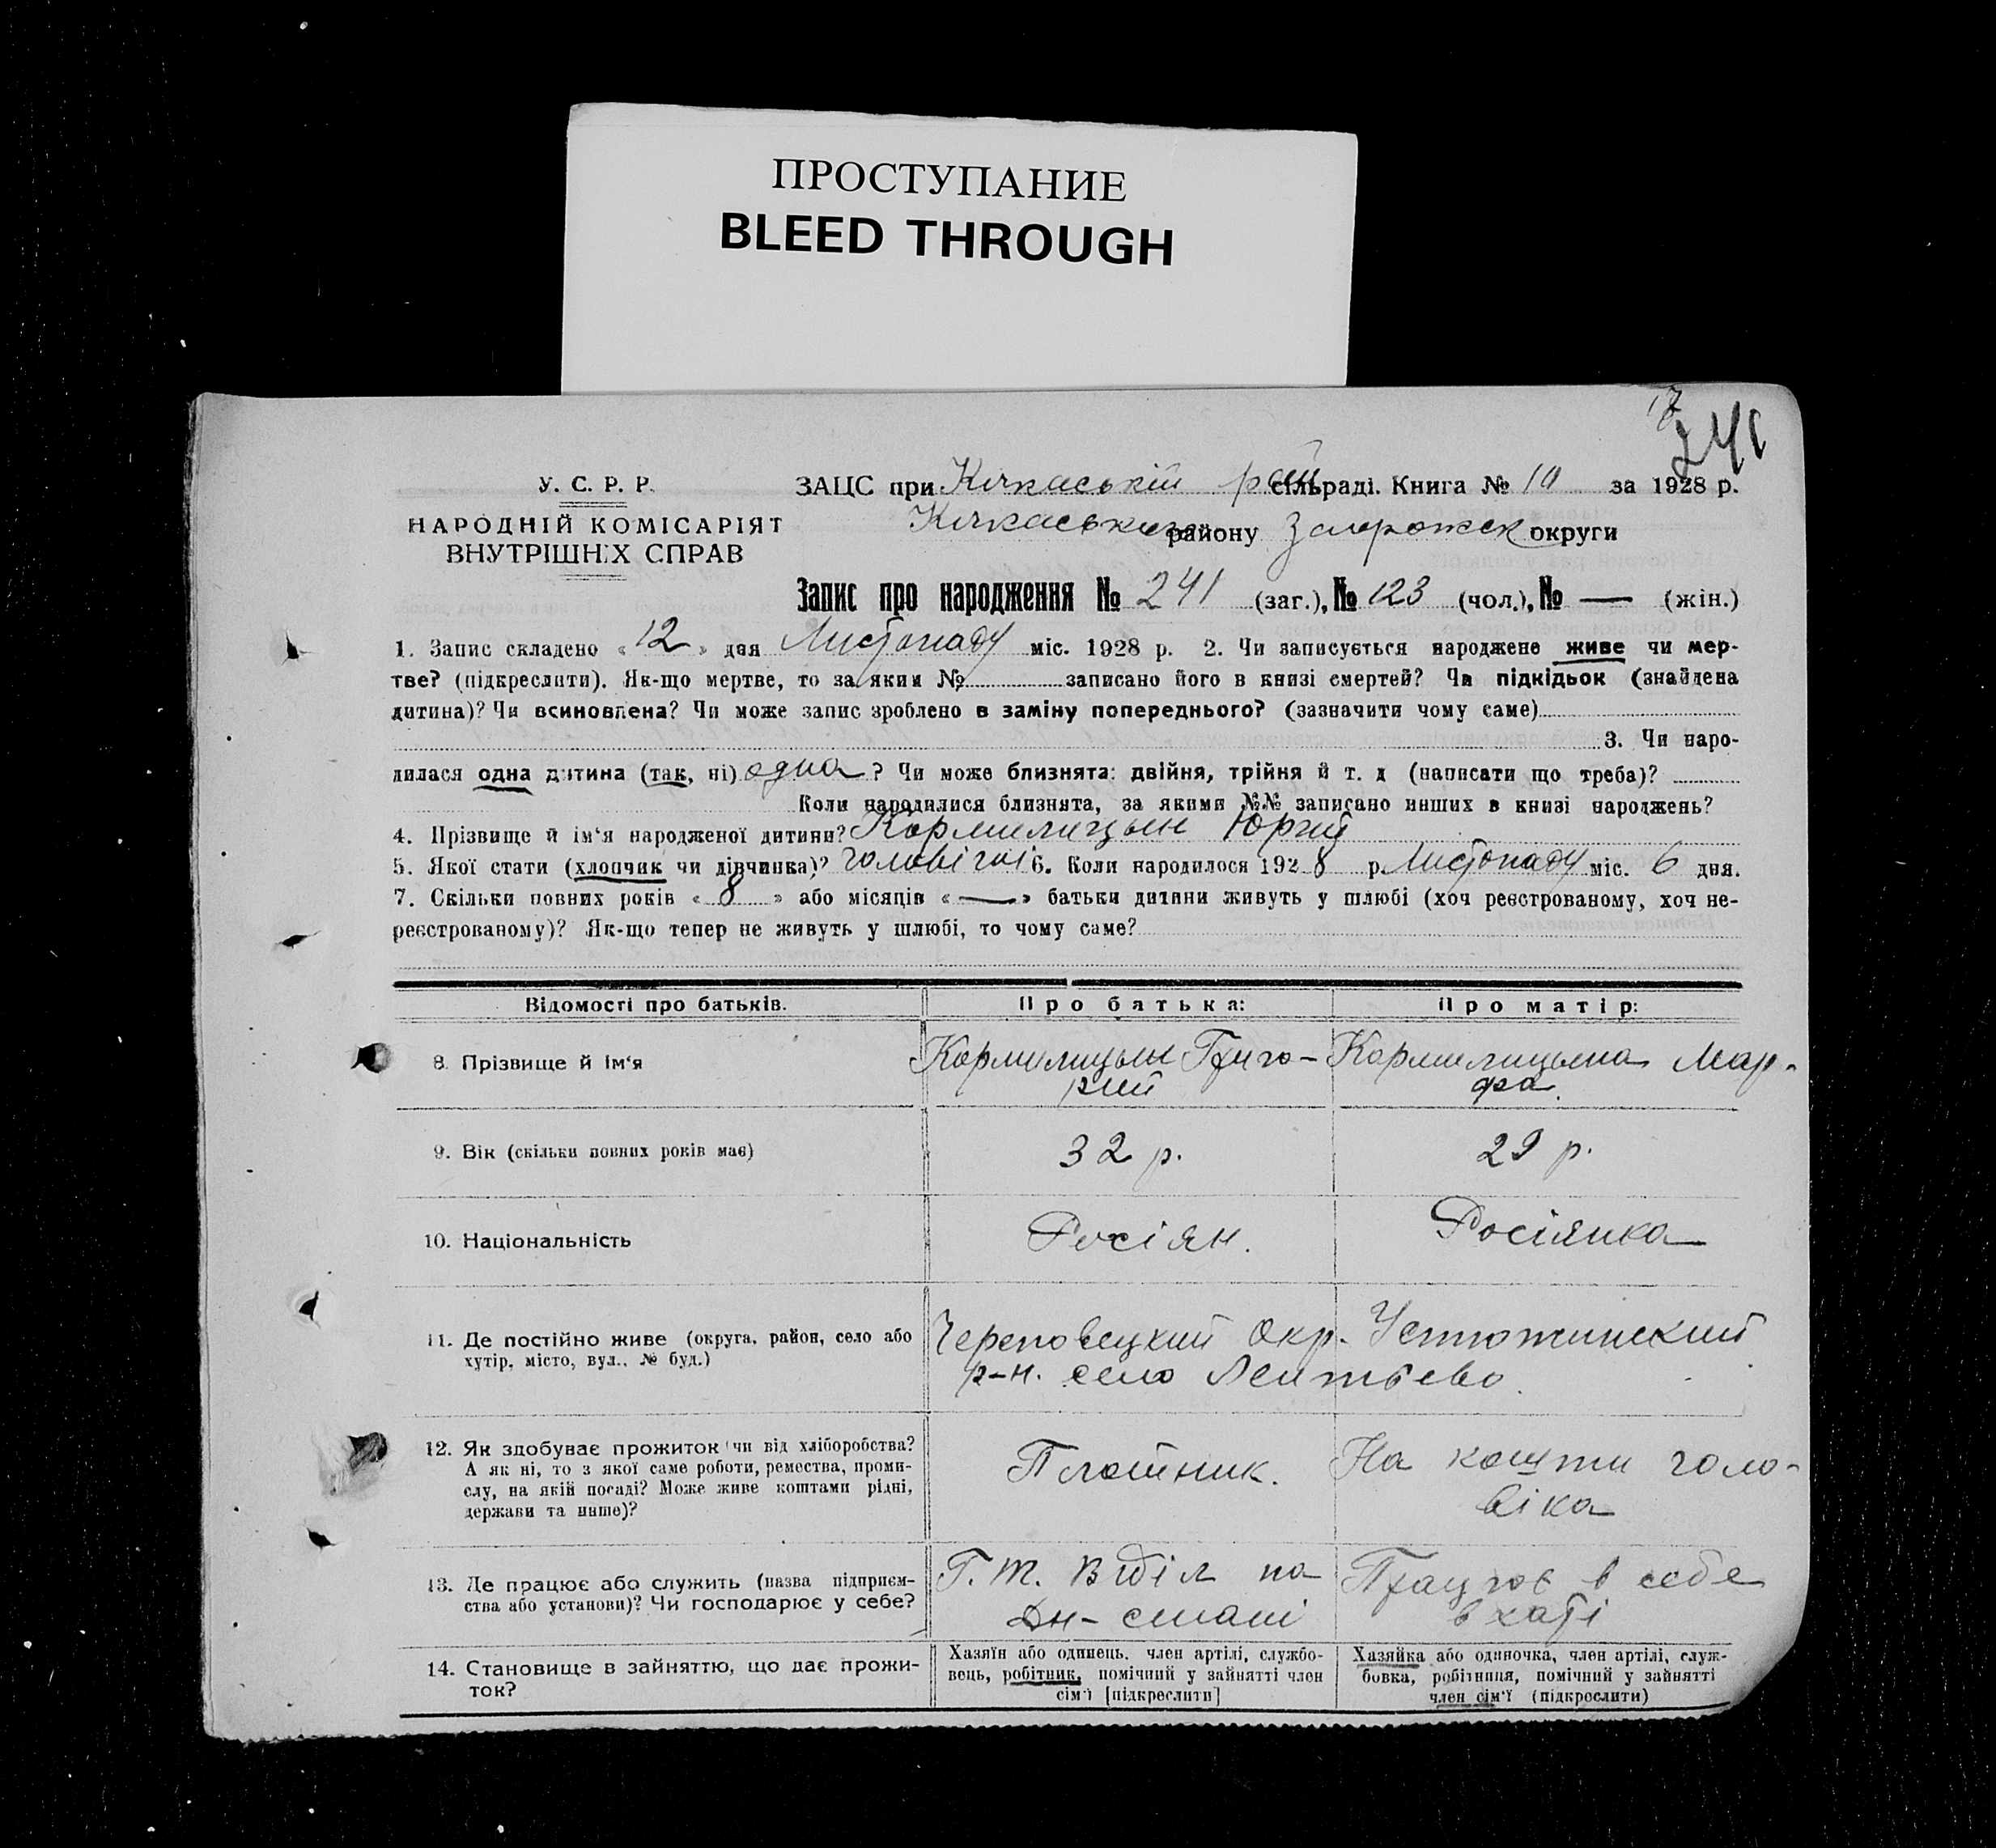 ПРОСТУПАНИЕ
BLEED THROUGH
241
У. С. Р. Р.
НАРОДНІЙ КОМІСАРІЯТ
ВНУТРІШНІХ СПРАВ
ЗАЦС при Кічкаській рай сільраді. Книга № 10 за 1928 р.
Кічкаського району Запорожск округи
Запис про народження № 241 (заг.), № 123 (чол.), № — (жін.)
1. Запис складено « 12 » дня Листопаду міс. 1928 р. 2. Чи записується народжене живе чи мер-
тве? (підкреслити). Як-що мертве, то за яким № записано його в книзі смертей? Чи підкідьок (знайдена
дитина)? Чи всиновлена? Чи може запис зроблено в заміну попереднього? (зазначити чому саме)
3. Чи наро-
дилася одна дитина (так, ні) одна ? Чи може близнята: двійня, трійня й т. д (написати що треба)?
Коли народилися близнята, за якими №№ записано инших в книзі народжень?
4. Прізвище й ім‘я народженої дитини? Кормилицын Юрий
5. Якої стати (хлопчик чи дівчинка)? чоловічої 6. Коли народилося 1928 р. Листопаду міс. 6 дня.
7. Скільки повних років « 8 » або місяців « — » батьки дитини живуть у шлюбі (хоч реєстрованому, хоч не-
реєстрованому)? Як-що тепер не живуть у шлюбі, то чому саме?
Відомості про батьків. Про батька: Про матір:
8. Прізвище й ім‘я Кормилицын Григо- Кормилицына Мар-
рий фа.
9. Вік (скільки повних років має) 32 р. 29 р.
10. Національність Росіян. Росіянка
11. Де постійно живе (округа, район, село або Череповецкий Окр. Устюжинский
хутір, місто, вул., № буд.) р-н. село Лентьево.
12. Як здобуває прожиток чи від хліборобства? Плотник. На кошти чоло-
А як ні, то з якої саме роботи, ремества, проми- віка
слу, на якій посаді? Може живе коштами рідні,
держави та инше)?
13. Де працює або служить (назва підприєм- Г. Т. Відділ на Працює в себе
ства або установи)? Чи господарює у себе? Дн- в хаті
14. Становище в зайняттю, що дає прожи-
ток?
Хазяїн або одинець, член артілі, службо-
вець, робітник, помічний у зайнятті член
сім‘ї [підкреслити]
Хазяйка або одиночка, член артілі, служ-
бовка, робітниця, помічний у зайнятті
член сім‘ї (підкреслити)